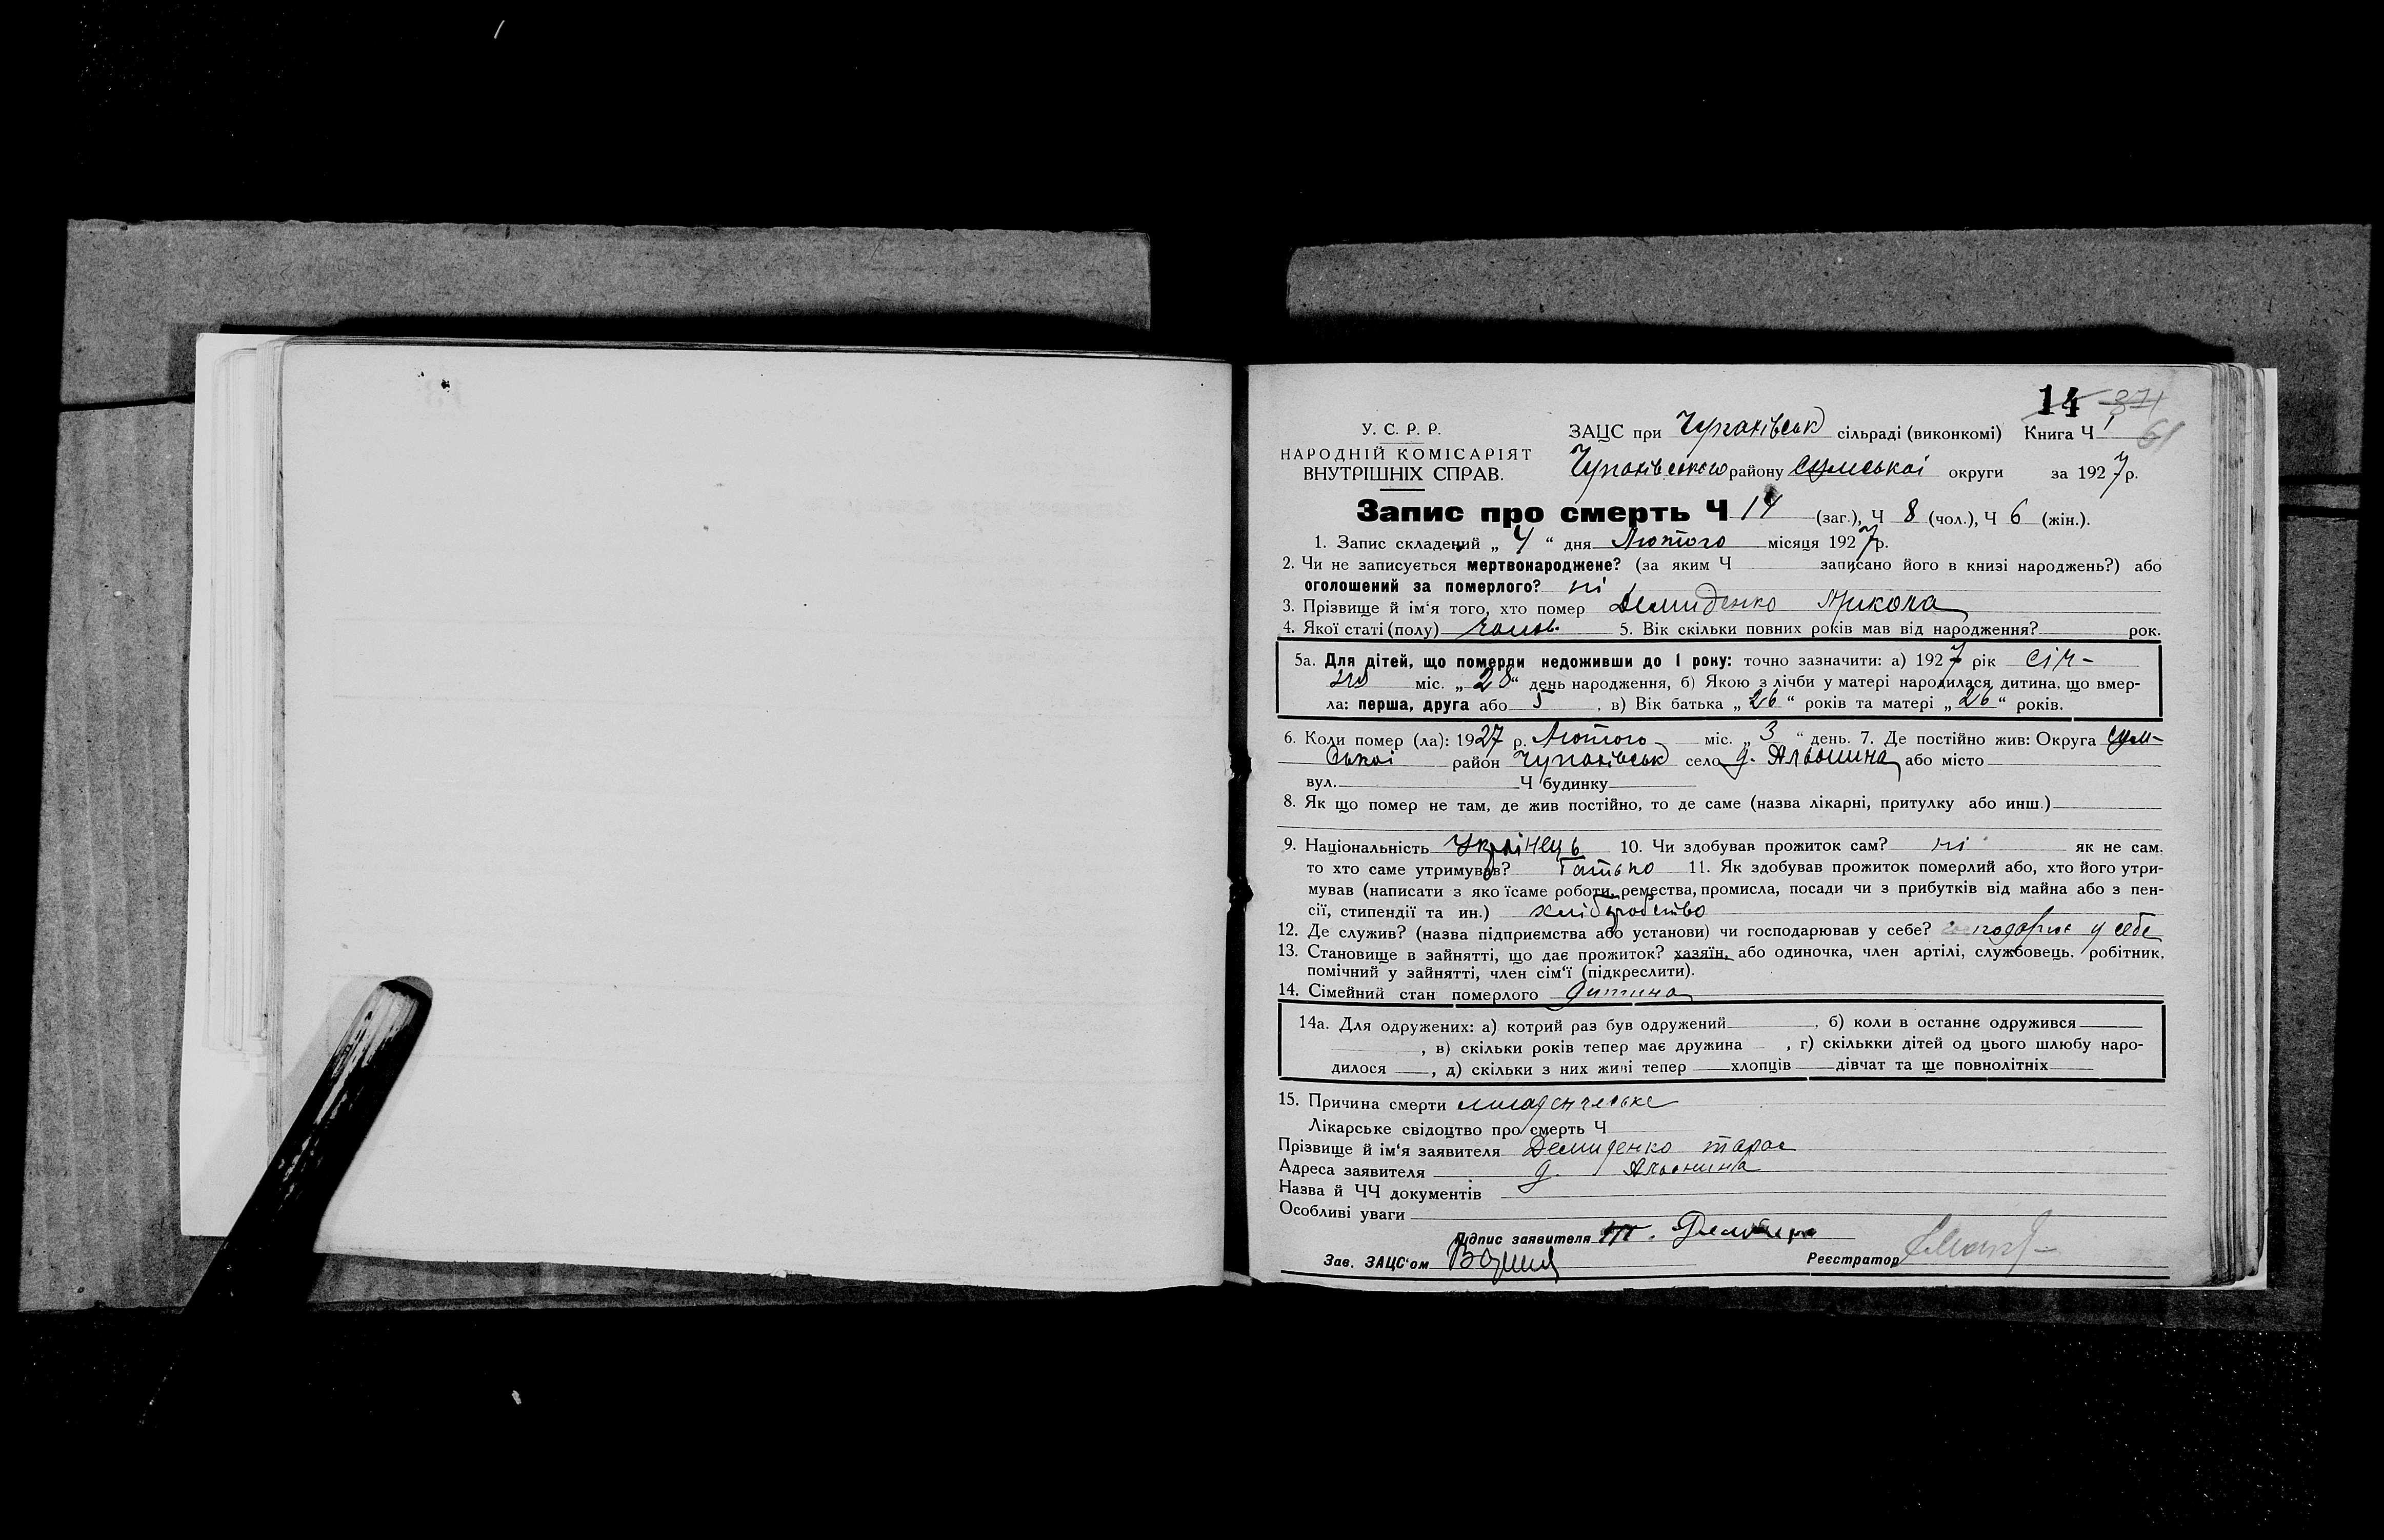 14 371
61
У. С. Р. Р.
НАРОДНІЙ КОМІСАРІЯТ
ВНУТРІШНІХ СПРАВ.
ЗАЦС при Чупахівськ сільраді (виконкомі) Книга Ч 1
Чупахівського району Сумської округи за 1927 р.
Запис про смерть Ч 14 (заг.), Ч 8 (чол.), Ч 6 (жін.).
1. Запис складений „ 4 “ дня Лютого місяця 1927 р.
2. Чи не записується мертвонароджене? (за яким Ч записано його в книзі народжень?) або
оголошений за померлого? ні
3. Прізвище й ім‘я того, хто помер Демиденко Микола
4. Якої статі (полу) чолов. 5. Вік скільки повних років мав від народження? рок.
5а. Для дітей, що померли недоживши до 1 року: точно зазначити: а) 1927 рік Січ-
ня міс. „ 28 “ день народження, б) Якою з лічби у матері народилася дитина, що вмер-
ла: перша, друга або 5, в) Вік батька „ 26 “ років та матері „ 26 “ років.
6. Коли помер (ла): 1927 р. Лютого міс. „ 3 “ день. 7. Де постійно жив: Округа Сум-
ської район Чупахівськ село д. Альошина або місто
вул. Ч будинку
8. Як що помер не там, де жив постійно, то де саме (назва лікарні, притулку або инш.)
9. Національність Українець 10. Чи здобував прожиток сам? ні як не сам,
то хто саме утримував? Батько 11. Як здобував прожиток померлий або, хто його утри-
мував (написати з яко їсаме роботи, ремества, промисла, посади чи з прибутків від майна або з пен-
сії, стипендії та ин.) хліборобство
12. Де служив? (назва підприємства або установи) чи господарював у себе? господарює у себе
13. Становище в зайнятті, що дає прожиток? хазяїн, або одиночка, член артілі, службовець, робітник,
помічний у зайнятті, член сім‘ї (підкреслити).
14. Сімейний стан померлого дитина
14а. Для одружених: а) котрий раз був одружений, б) коли в останнє одружився
, в) скільки років тепер має дружина , г) скількки дітей од цього шлюбу наро-
дилося , д) скільки з них живі тепер хлопців дівчат та ще повнолітніх
15. Причина смерти младенческе
Лікарське свідоцтво про смерть Ч
Прізвище й ім‘я заявителя Демиденко тарас
Адреса заявителя д. Альошина
Назва й ЧЧ документів
Особливі уваги
Підпис заявителя Т.
Зав. ЗАЦС‘ом Реєстратор